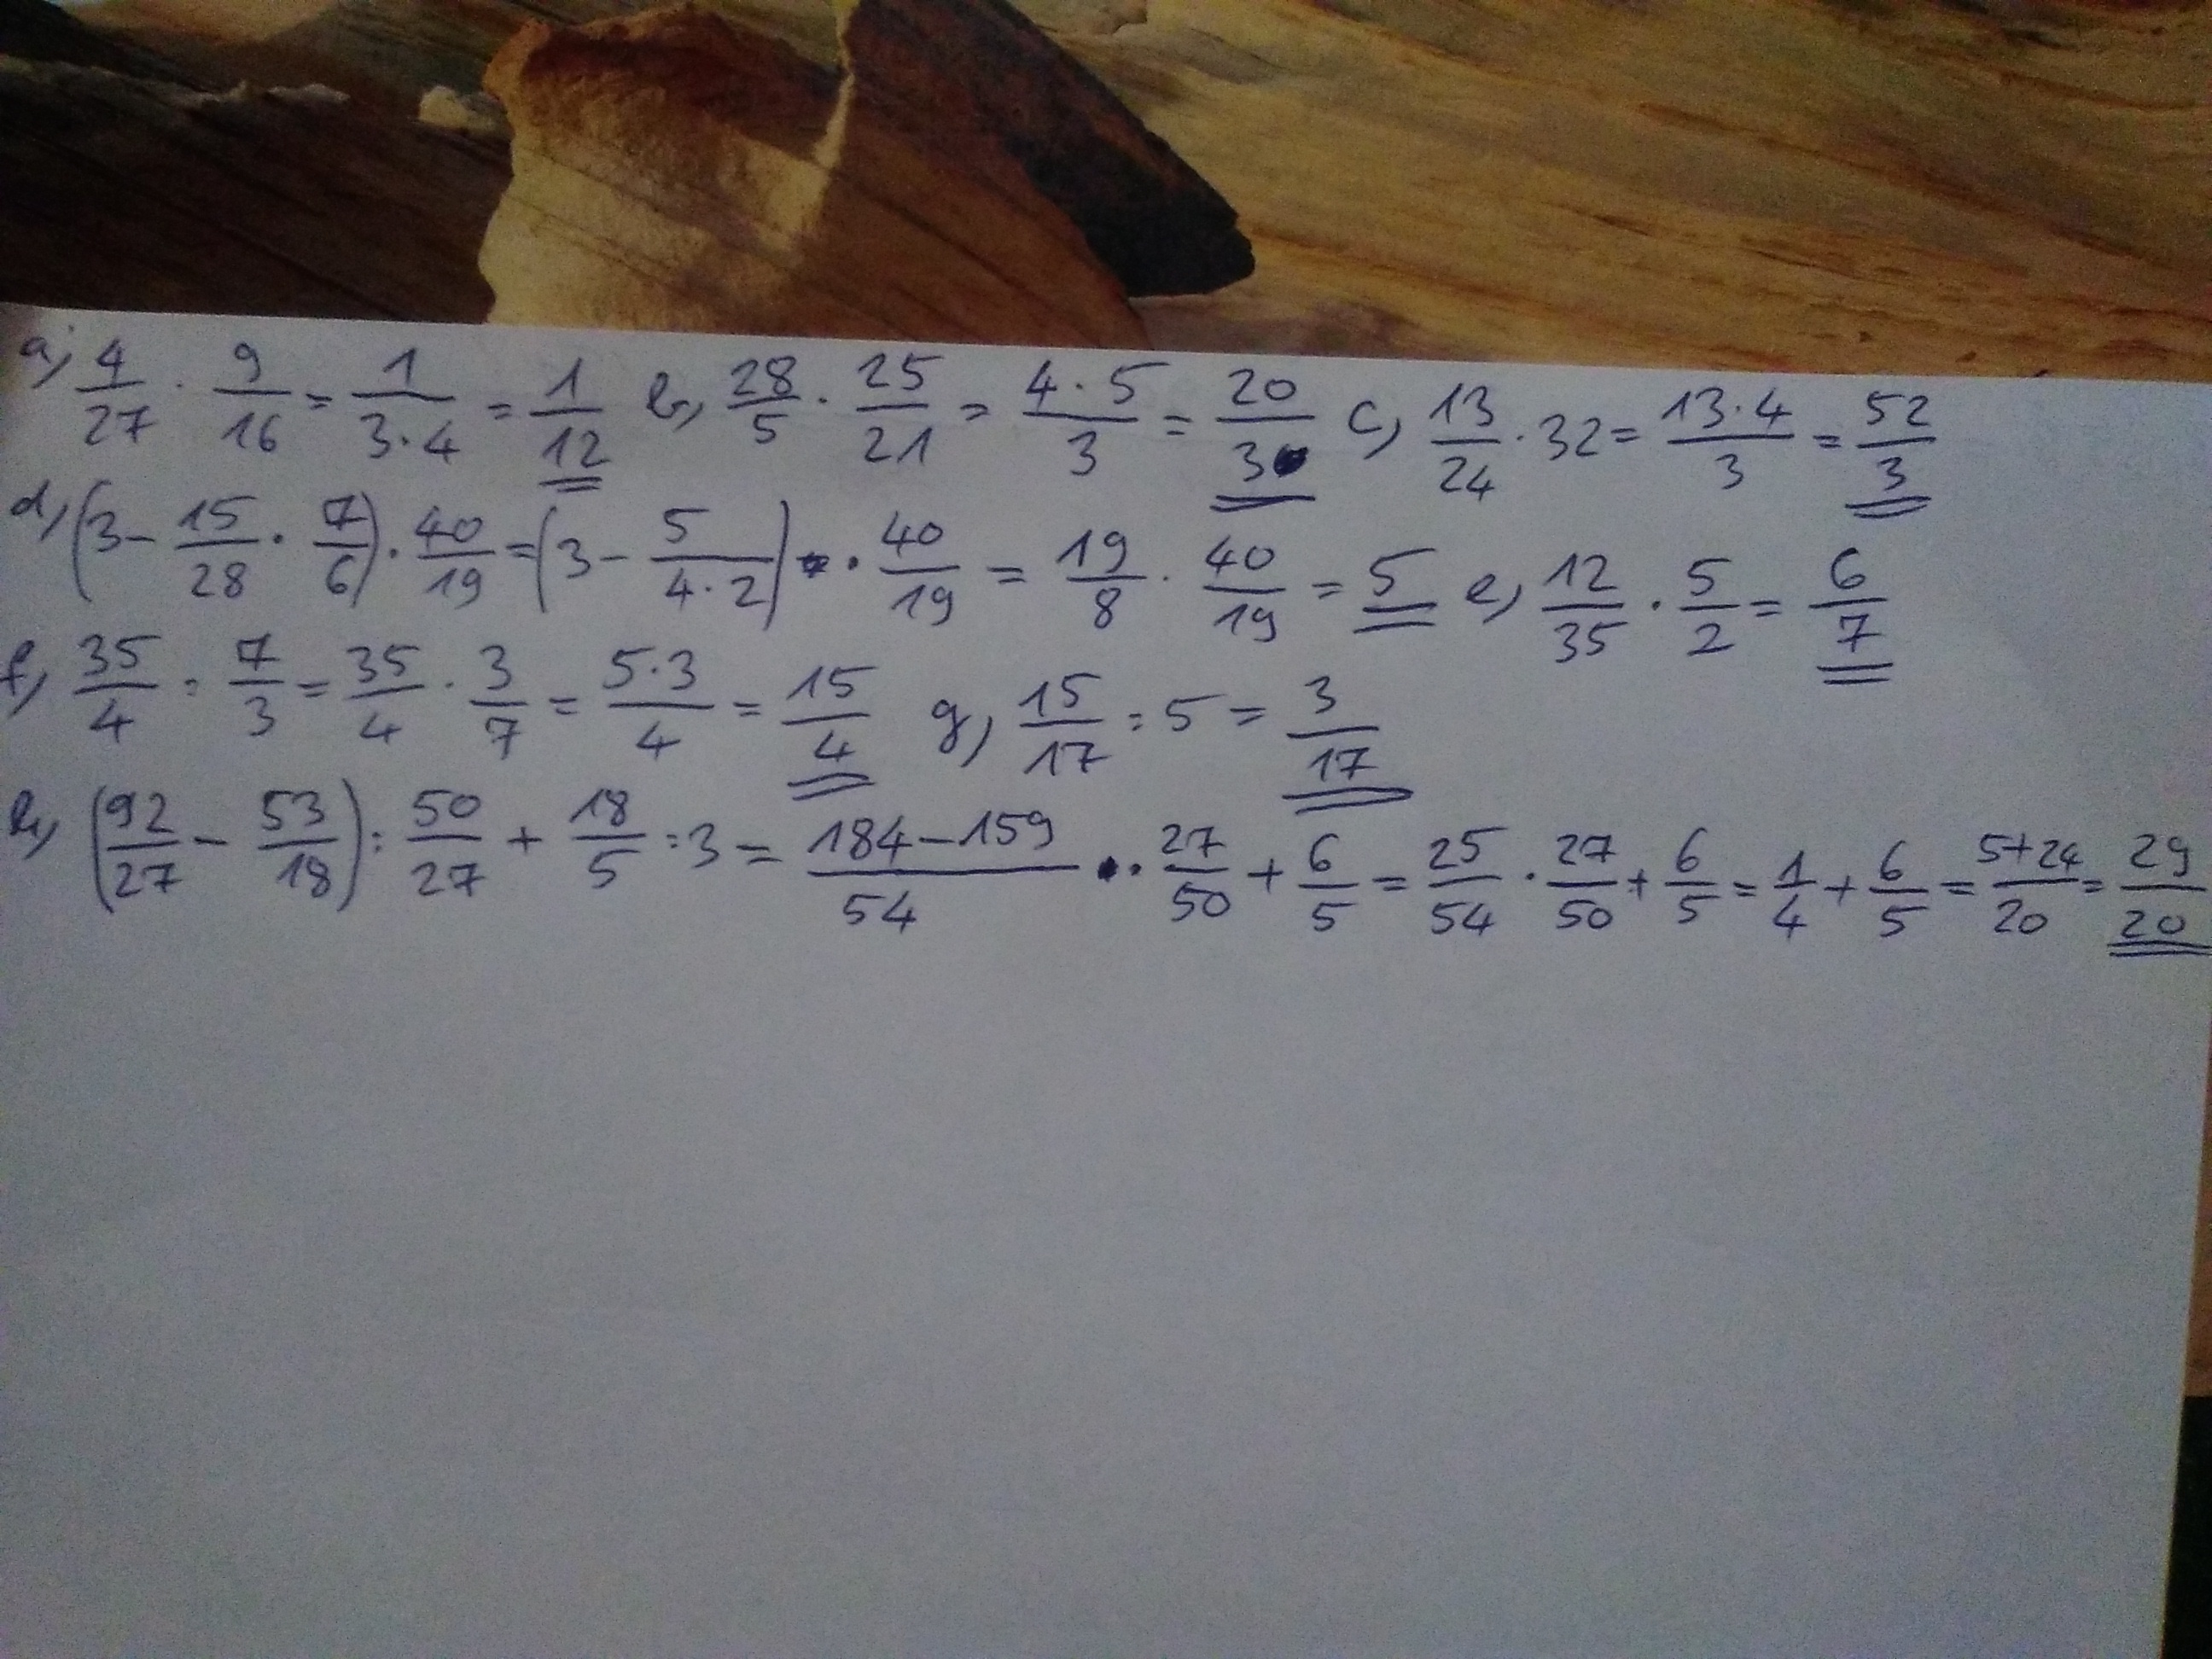 a, 4/27 · 9/16 = 1/(3·4) = 1/12 b, 28/5 · 25/21 = (4·5)/3 = 20/3 c, 13/24 · 32 = (13·4)/3 = 52/3
d, (3 - 15/28 · 7/6) · 40/19 = (3 - 5/(4·2)) · 40/19 = 19/8 · 40/19 = 5 e, 12/35 · 5/2 = 6/7
f, 35/4 : 7/3 = 35/4 · 3/7 = (5·3)/4 = 15/4 g, 15/17 : 5 = 3/17
h, (92/27 - 53/18) : 50/27 + 18/5 : 3 = (184-159)/54 · 27/50 + 6/5 = 25/54 · 27/50 + 6/5 = 1/4 + 6/5 = (5+24)/20 = 29/20